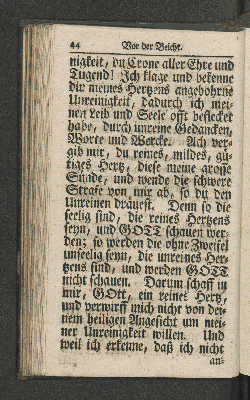 44 Vor der Beicht.
nigkeit, du Crone aller Ehre und
Tugend! Ich klage und bekenne
dir meines Hertzens angebohrne
Unreinigkeit, dadurch ich mei-
nen Leib und Seele offt beflecket
habe, durch unreine Gedancken,
Worte und Wercke. Ach ver-
gib mir, du reines, mildes, gü-
tiges Hertz, diese meine grosse
Sünde, und wende die schwere
Strafe von mir ab, so du den
Unreinen dräuest. Denn so die
seelig sind, die reines Hertzens
seyn, und GOTT schauen wer-
den; so werden die ohne Zweifel
unseelig seyn, die unreines Her-
tzens sind, und werden GOTT
nicht schauen. Darum schaff in
mir, GOtt, ein reines Hertz,
und verwirff mich nicht von dei-
nem heiligen Angesicht um mei-
ner Unreinigkeit willen. Und
weil ich erkenne, daß ich nicht
an-